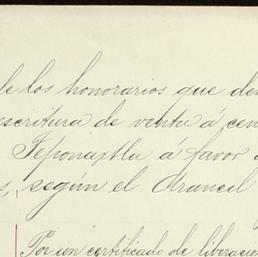 de los honorarios que de
escritura de venta á cen
Teponaxtla á favor
según el Arancel
Por un certificado de liberacio